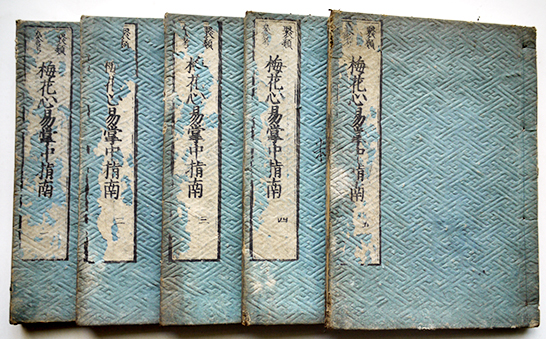 梅花心易掌中指南 一
梅花心易掌中指南 二
梅花心易掌中指南 三
梅花心易掌中指南 四
梅花心易掌中指南 五